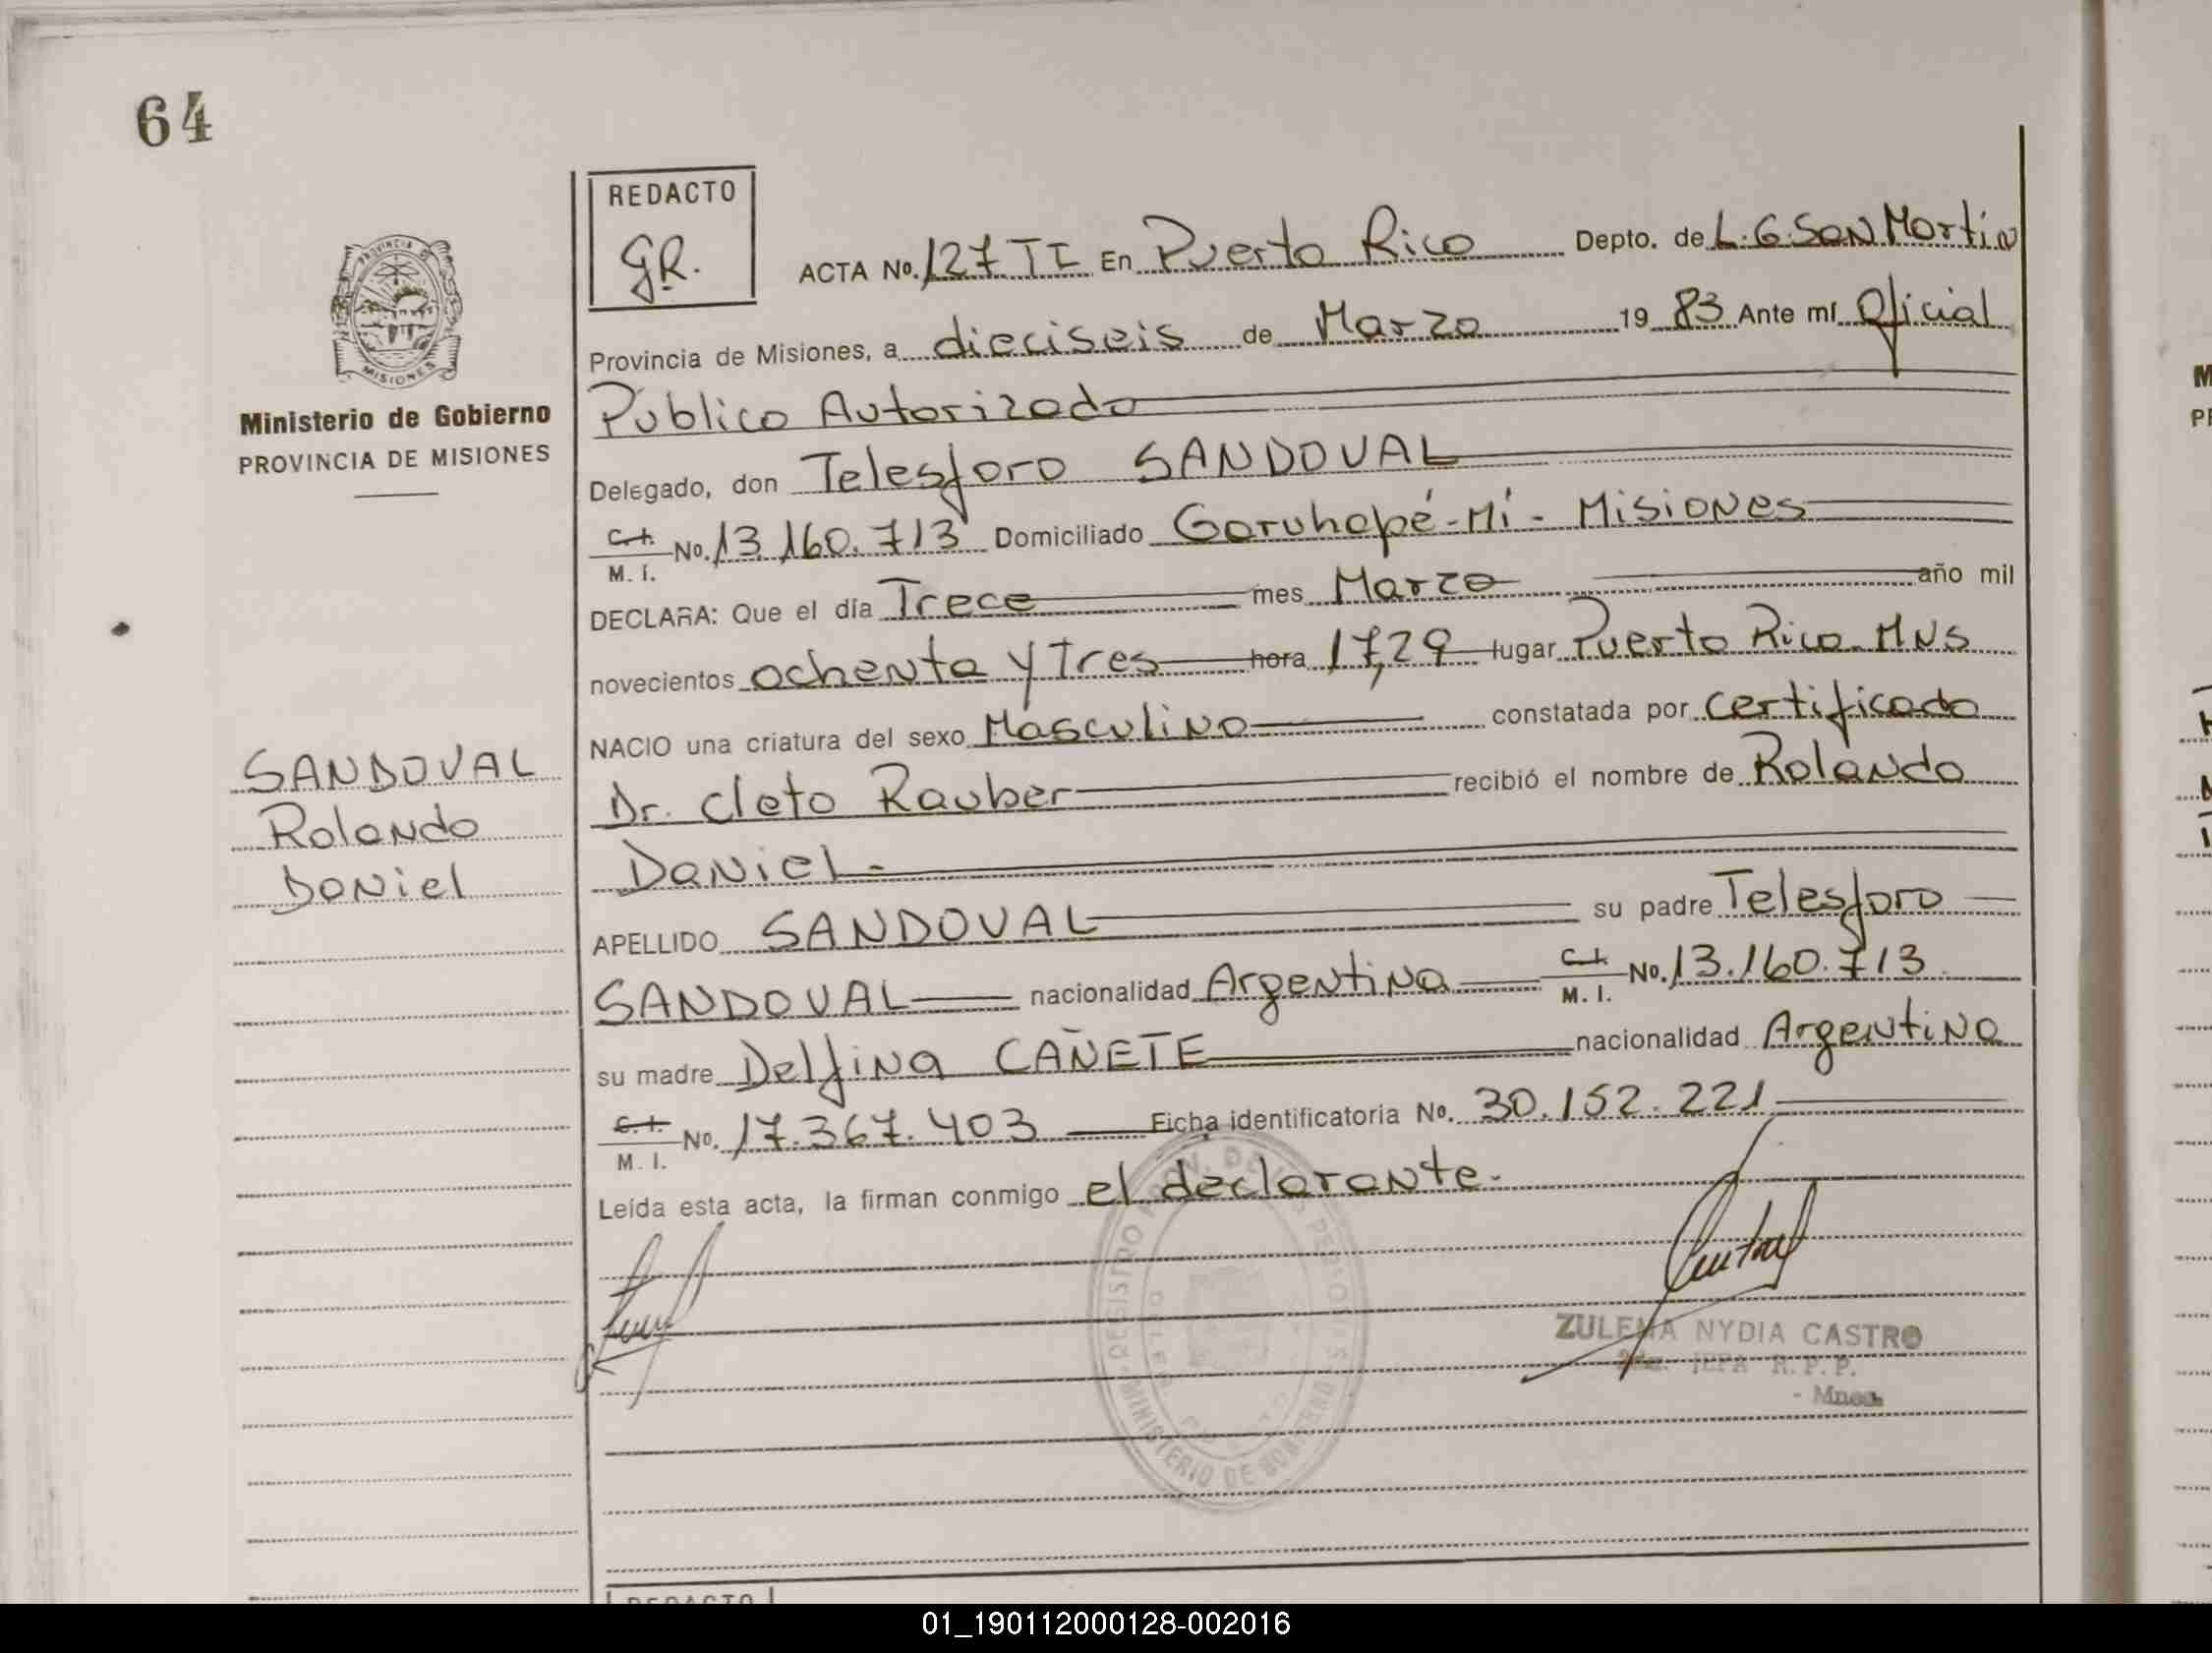 64
REDACTO
G.R.
PROVINCIA DE
MISIONES
Ministerio de Gobierno
PROVINCIA DE MISIONES
ACTA No. 127 TI En Puerto Rico Depto. de L.G. San Martin
Provincia de Misiones, a dieciseis de Marzo 1983 Ante mí Oficial
Público Autorizado
Delegado, don Telesforo SANDOVAL
C.I. M. I. No. 13.160.713 Domiciliado Garuhapé-Mí - Misiones
DECLARA: Que el día Trece mes Marzo año mil
novecientos ochenta y Tres hora 17,29 lugar Puerto Rico-MNS
NACIO una criatura del sexo Masculino constatada por certificado
Dr. Cleto Rauber recibió el nombre de Rolando
Daniel.-
APELLIDO SANDOVAL su padre Telesforo
SANDOVAL nacionalidad Argentina C.I. M. I. No. 13.160.713
su madre Delfina CAÑETE nacionalidad Argentina
C.I. M. I. No. 17.367.403 Ficha identificatoria No. 30.152.221
Leída esta acta, la firman conmigo el declarante.-
SANDOVAL
Rolando
Daniel
ZULEMA NYDIA CASTRO
JEFA R.P.P.
- Mnes.
REGISTRO PROV. DE LAS PERSONAS
MINISTERIO DE GOBIERNO
REDACTO
01_190112000128-002016